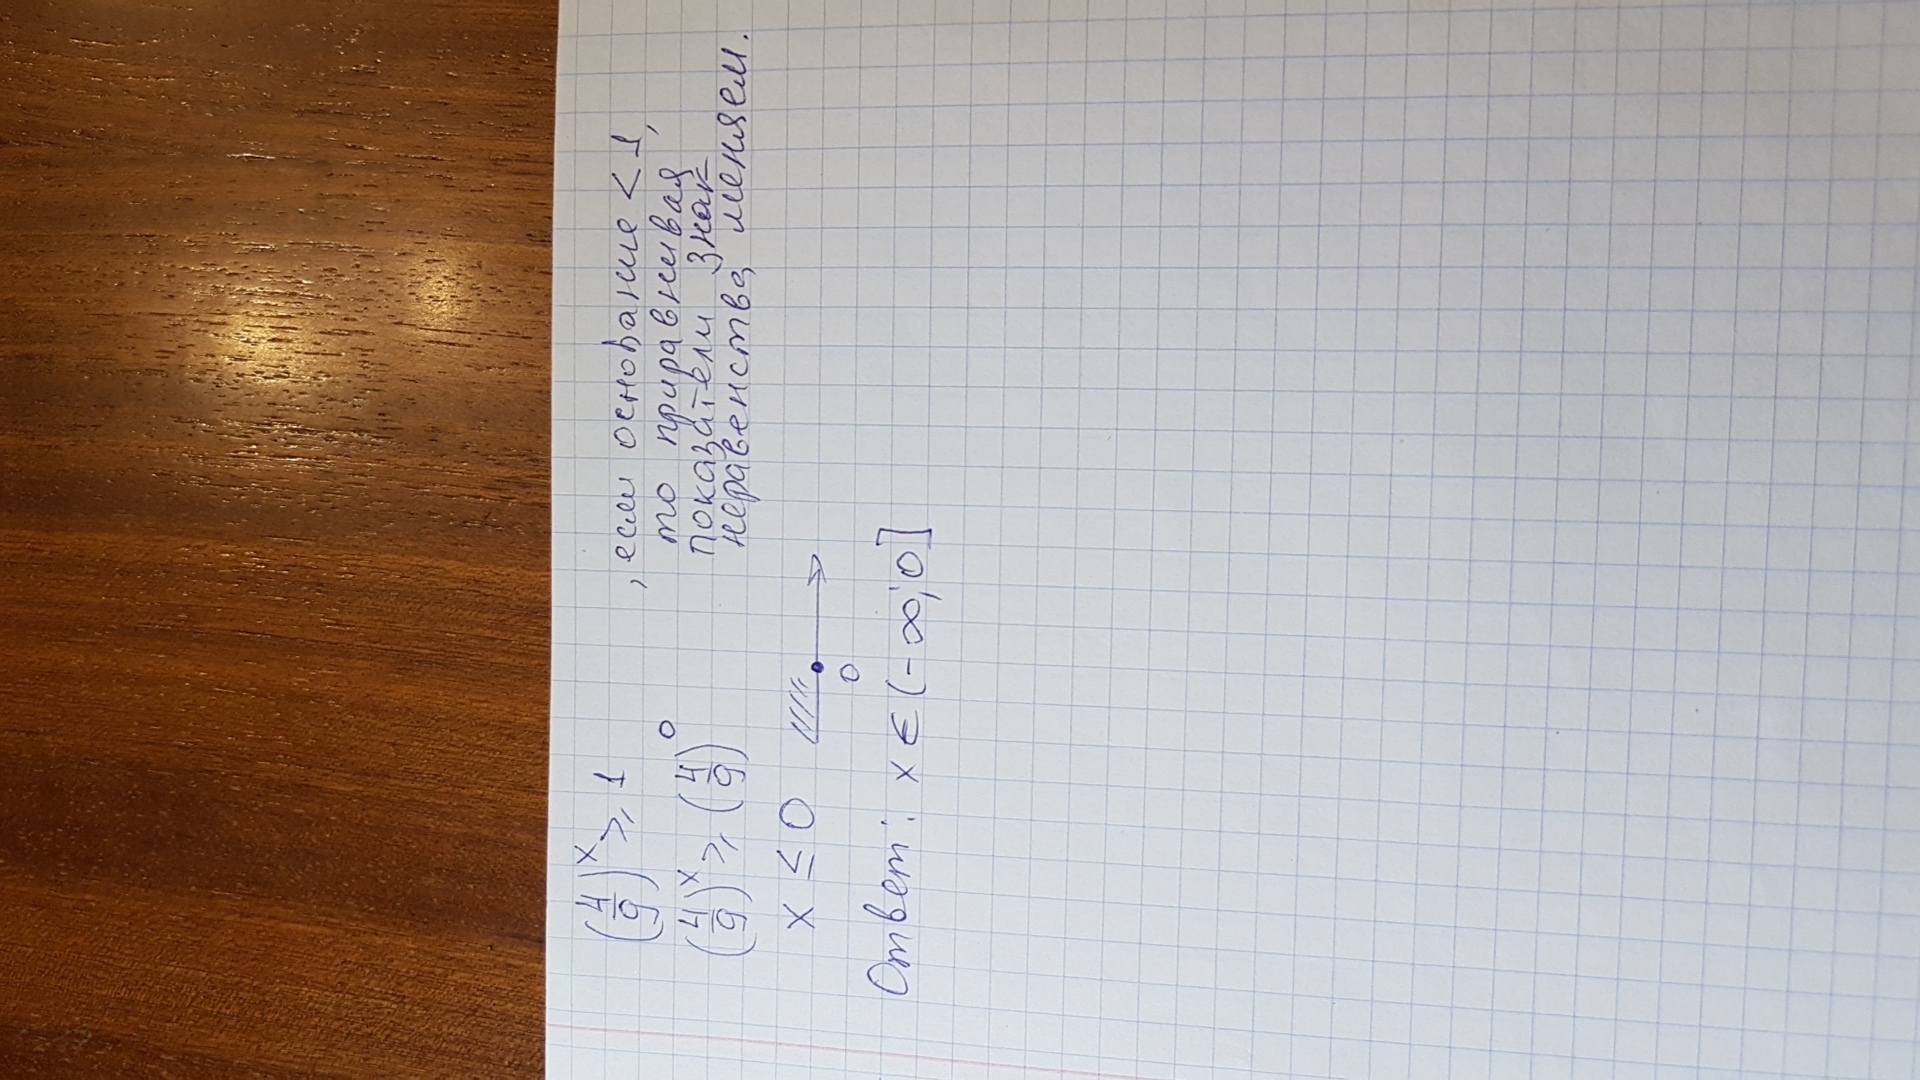 (4/9)^x ⩾ 1 , если основание < 1,
то приравнивая
(4/9)^x ⩾ (4/9)^0 показатели знак
неравенства меняем.
x ≤ 0
0
Ответ: x ∈ (-∞; 0]